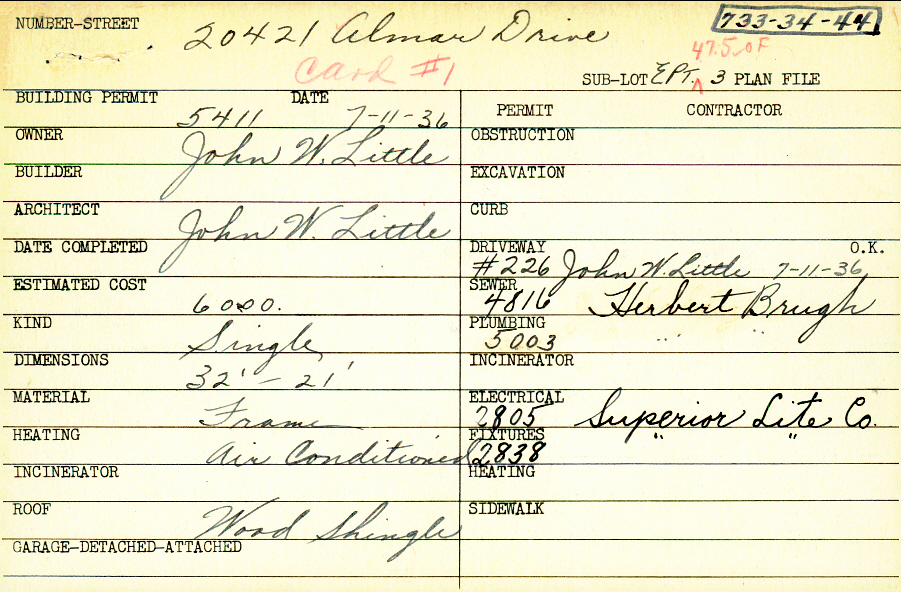 NUMBER-STREET 20421 Almar Drive 733-34-44
Card #1 47.5 OF
SUB-LOT EPT. 3 PLAN FILE
BUILDING PERMIT 5411 DATE 7-11-36
PERMIT CONTRACTOR
OWNER John W. Little
OBSTRUCTION
BUILDER
EXCAVATION
ARCHITECT John W. Little
CURB
DATE COMPLETED
DRIVEWAY #226 John W. Little 7-11-36 O.K.
ESTIMATED COST 6000.
SEWER 4816 Herbert Brugh
KIND Single
PLUMBING 5003 " "
DIMENSIONS 32' - 21'
INCINERATOR
MATERIAL Frame
ELECTRICAL 2805 Superior Lite Co.
HEATING Air Conditioned
FIXTURES 2838 " "
INCINERATOR
HEATING
ROOF Wood Shingle
SIDEWALK
GARAGE-DETACHED-ATTACHED